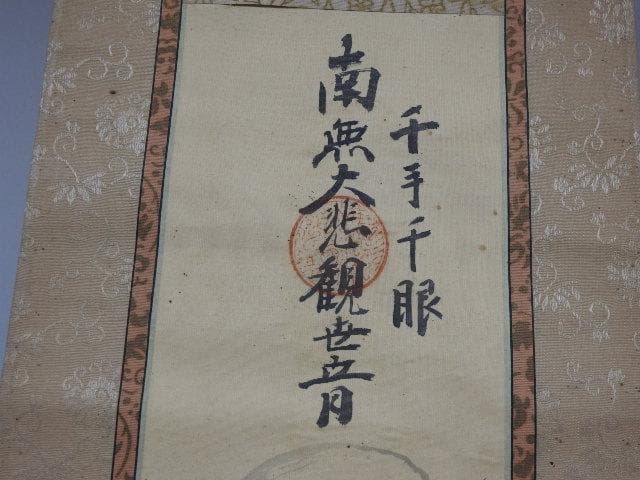 千手千眼
南無大悲観世音